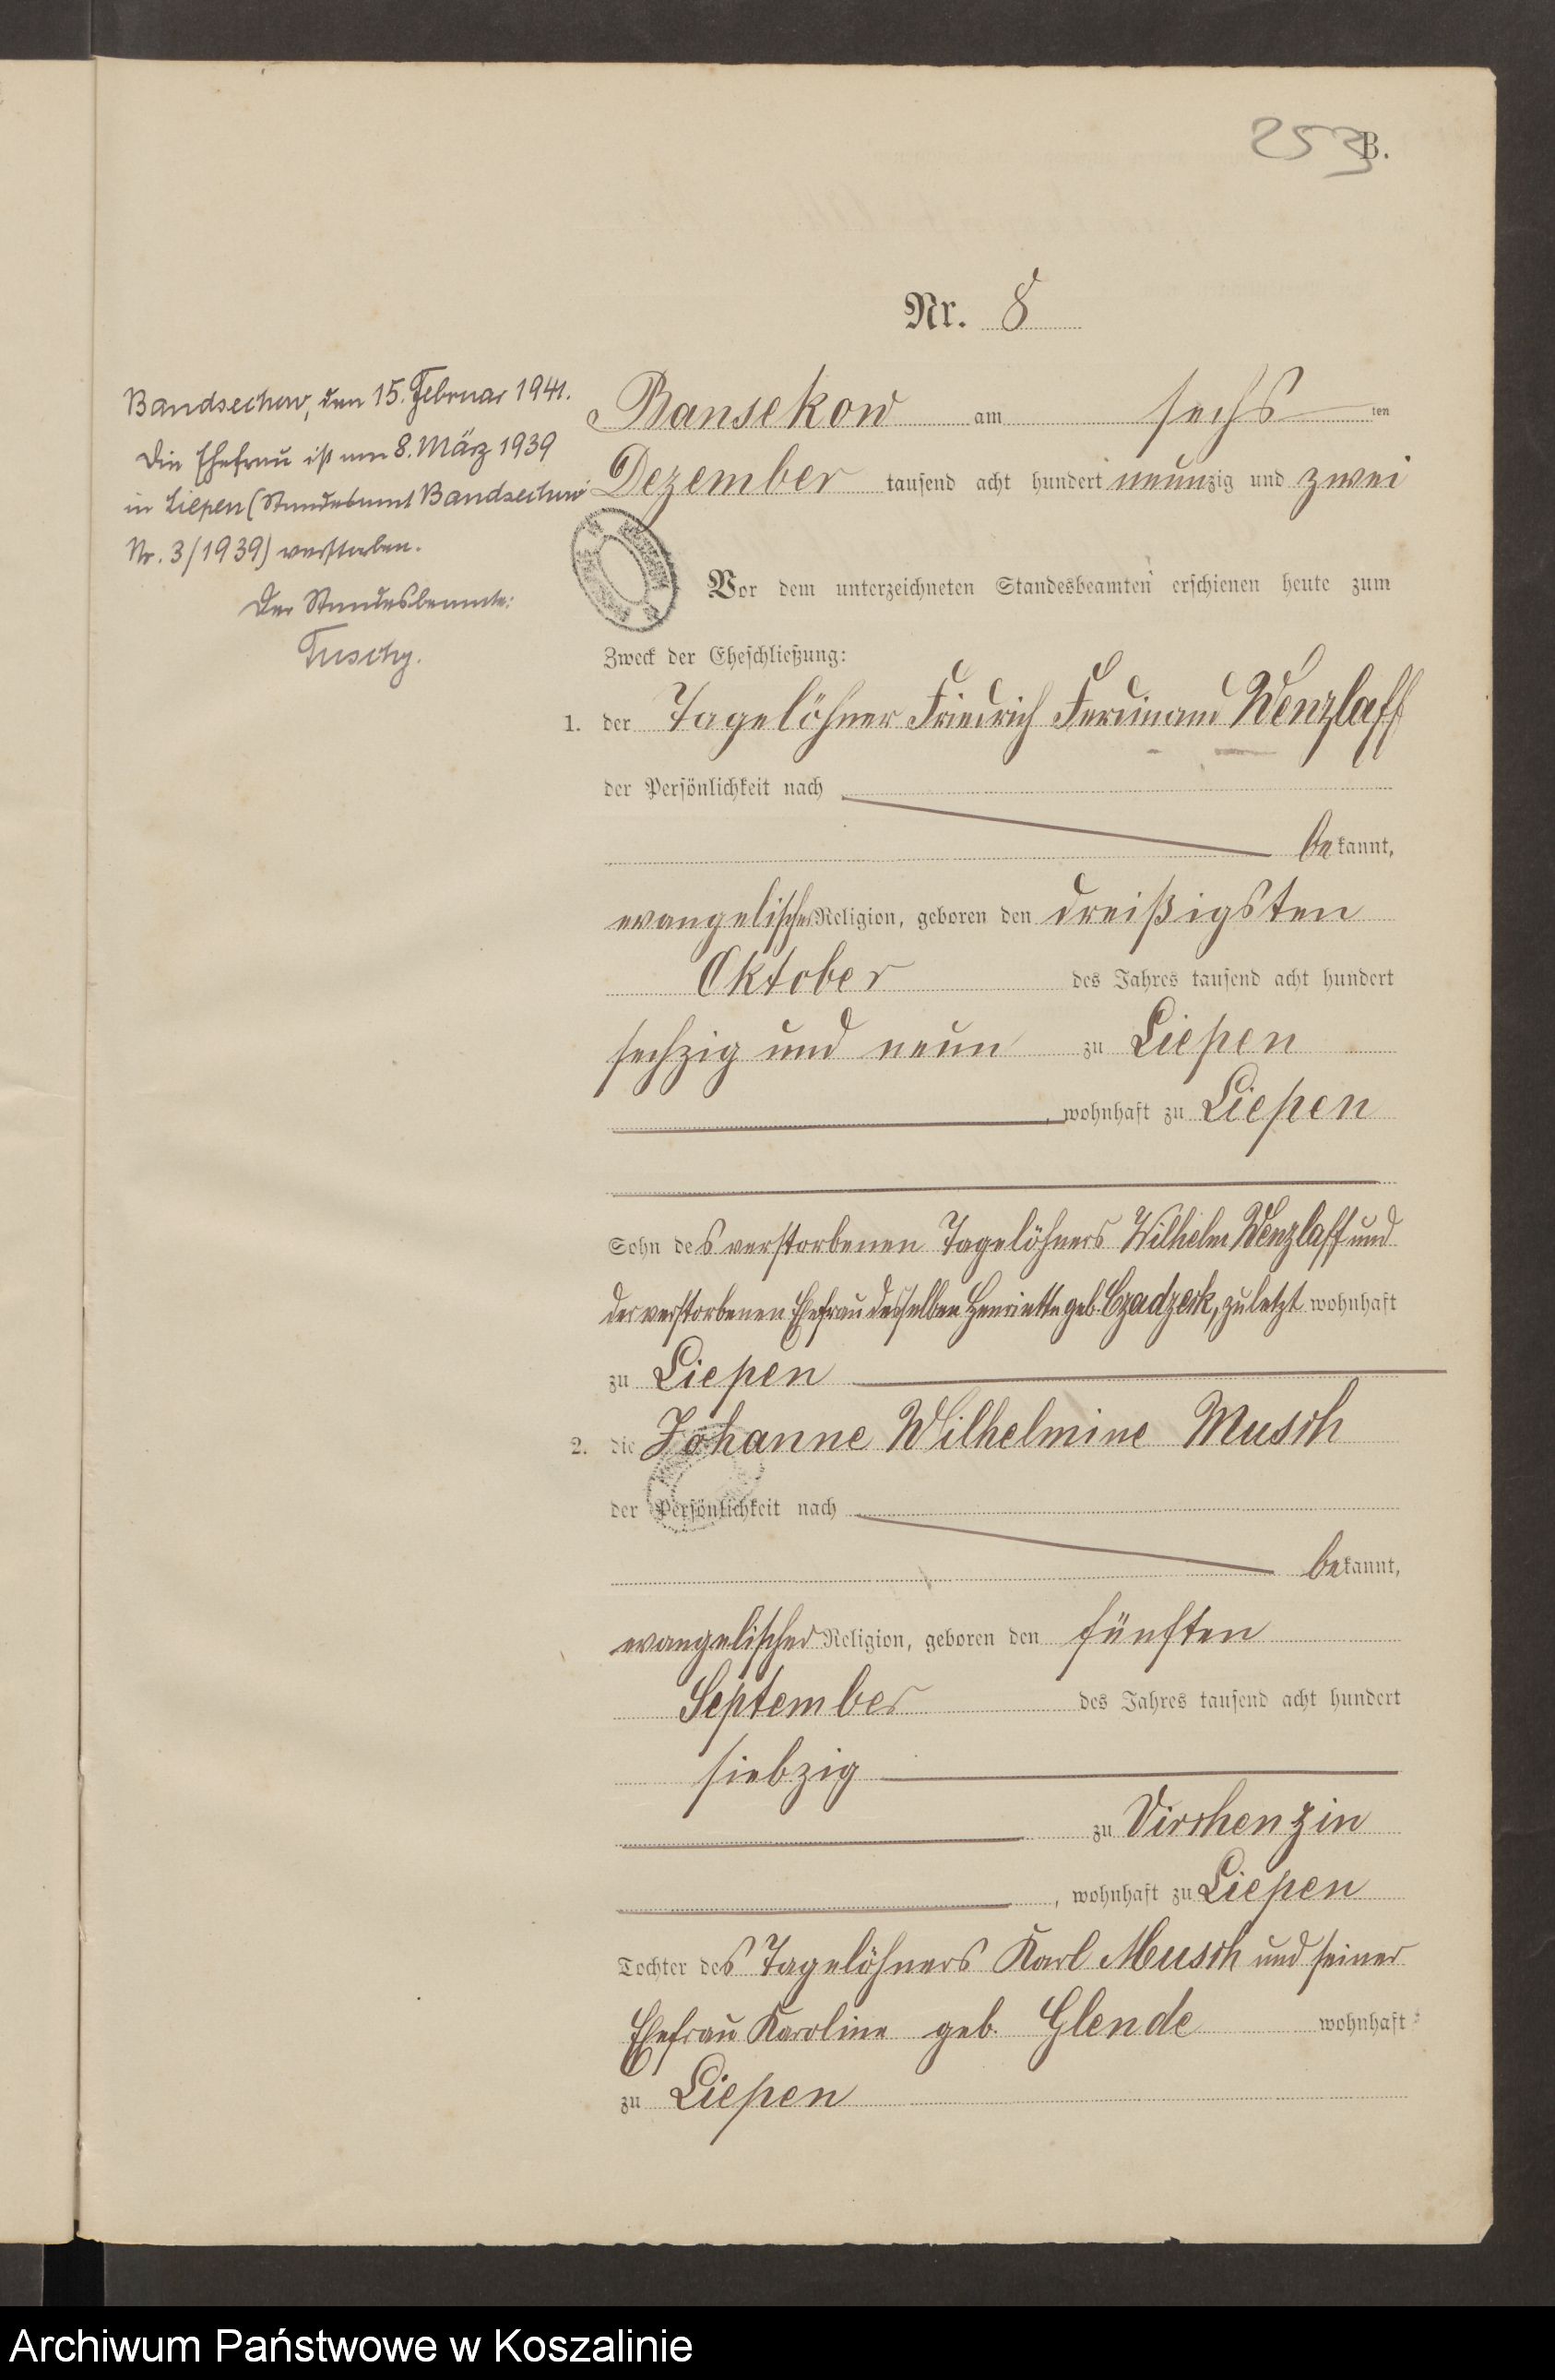 253 B.
Nr. 8
Bandsechow, den 15. Februar 1941.
Die Ehefrau ist am 8. März 1939
in Liepen (Standesamt Bandsechow
Nr. 3/1939) verstorben.
Der Standesbeamte:
Bansekow am sechs ten
Dezember tausend acht hundert neunzig und zwei
Vor dem unterzeichneten Standesbeamten erschienen heute zum
Zweck der Eheschließung:
1. der Tagelöhner Friedrich Ferdinand Wenzlaff
der Persönlichkeit nach
bekannt,
evangelischer Religion, geboren den dreißigsten
Oktober des Jahres tausend acht hundert
sechzig und neun zu Liepen
, wohnhaft zu Liepen
Sohn des verstorbenen Tagelöhners Wilhelm Wenzlaff und
der verstorbenen Ehefrau desselben Henriette geb. zuletzt wohnhaft
zu Liepen
2. die Johanne Wilhelmine Musch
der Persönlichkeit nach
bekannt,
evangelischer Religion, geboren den fünften
September des Jahres tausend acht hundert
siebzig
zu Virchenzin
, wohnhaft zu Liepen
Tochter des Tagelöhners Karl Musch und seiner
Ehefrau Karoline geb. Glende wohnhaft
zu Liepen
Archiwum Państwowe w Koszalinie